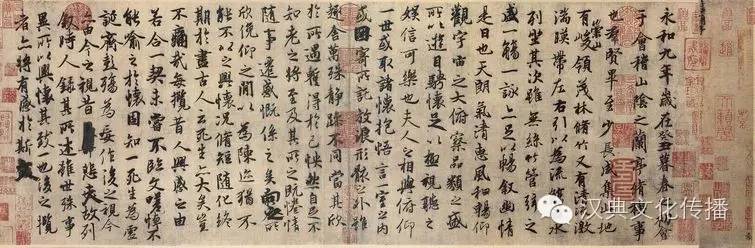 永和九年歲在癸丑暮春之初會
于會稽山陰之蘭亭脩稧事
也群賢畢至少長咸集此地
有崇山峻領茂林脩竹又有清流激
湍暎帶左右引以為流觴曲水
列坐其次雖無絲竹管弦之
盛一觴一詠亦足以暢敘幽情
是日也天朗氣清惠風和暢仰
觀宇宙之大俯察品類之盛
所以遊目騁懷足以極視聽之
娛信可樂也夫人之相與俯仰
一世或取諸懷抱悟言一室之內
或因寄所託放浪形骸之外雖
趣舍萬殊靜躁不同當其欣
於所遇蹔得於己怏然自足不
知老之將至及其所之既惓情
隨事遷感慨係之矣向之所
欣俛仰之閒以為陳迹猶不
能不以之興懷況脩短隨化終
期於盡古人云死生亦大矣豈
不痛哉每攬昔人興感之由
若合一契未嘗不臨文嗟悼不
能喻之於懷固知一死生為虛
誕齊彭殤為妄作後之視今
亦由今之視昔悲夫故列
敘時人錄其所述雖世殊事
異所以興懷其致一也後之攬
者亦將有感於斯文
汉典文化传播